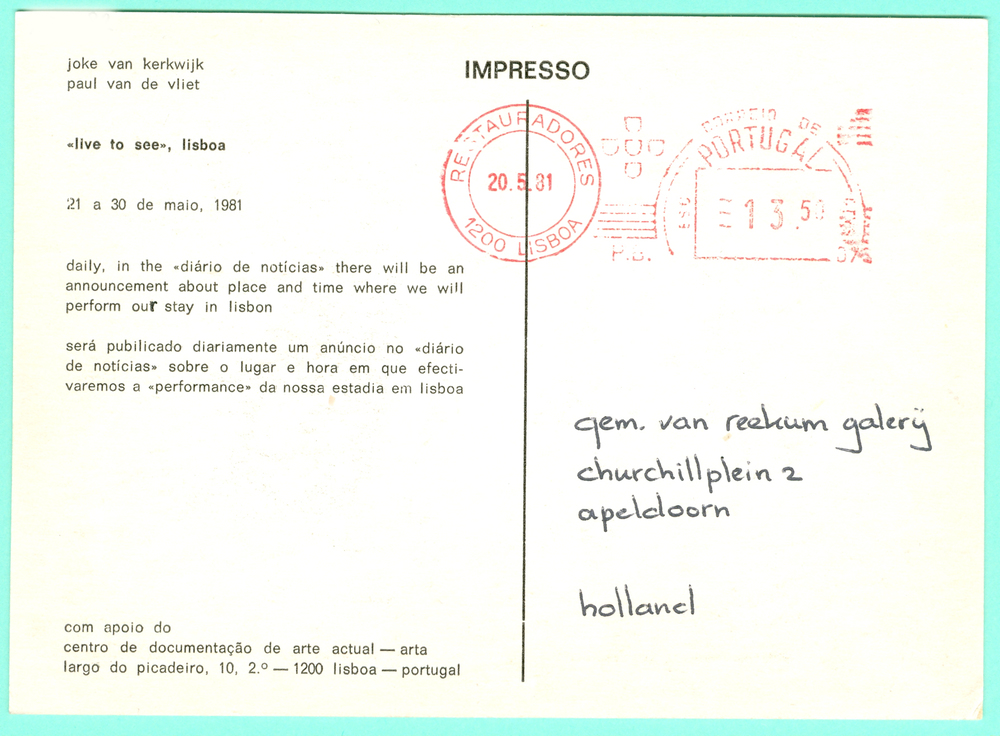 joke van kerkwijk
paul van de vliet
«live to see», lisboa
21 a 30 de maio, 1981
daily, in the «diário de notícias» there will be an
announcement about place and time where we will
perform our stay in lisbon
será pubilicado diariamente um anúncio no «diário
de notícias» sobre o lugar e hora em que efecti-
varemos a «performance» da nossa estadia em lisboa
com apoio do
centro de documentação de arte actual — arta
largo do picadeiro, 10, 2.º — 1200 lisboa — portugal
IMPRESSO
RESTAURADORES
20.5.81
1200 LISBOA
P.B.
CORREIO DE
PORTUGAL
ESC
13.50
gem. van reekum galerij
churchillplein 2
apeldoorn
holland